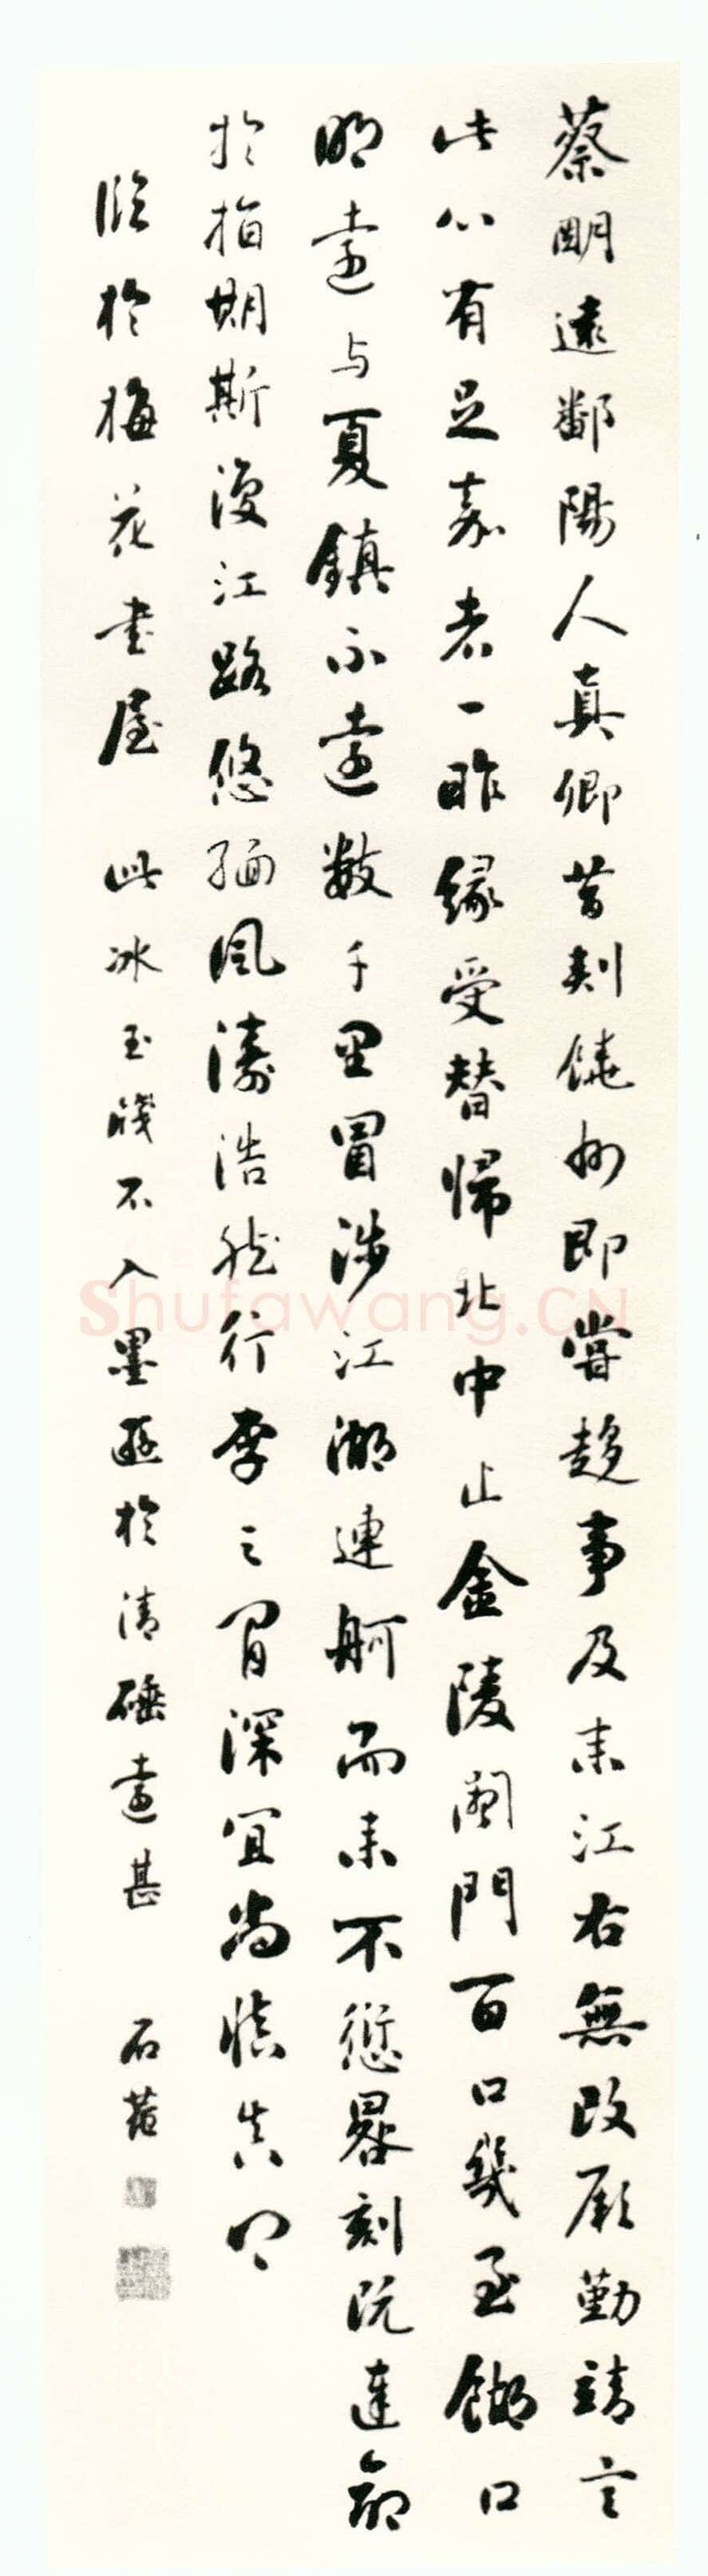 蔡明遠鄱陽人真卿昔刺饒州即嘗趨事及來江右無改厥勤靖言
此心有足嘉者一昨緣受替歸北中止金陵闔門百口幾至餬口
明遠与夏鎮不遠數千里冒涉江湖連舸而來不愆晷刻既達命
於指期斯復江路悠緬風濤浩然行李之間深宜尚慎真卿
臨於梅花書屋 此冰玉牋不入墨遜於清硾遠甚 石菴
Shufawang.CN